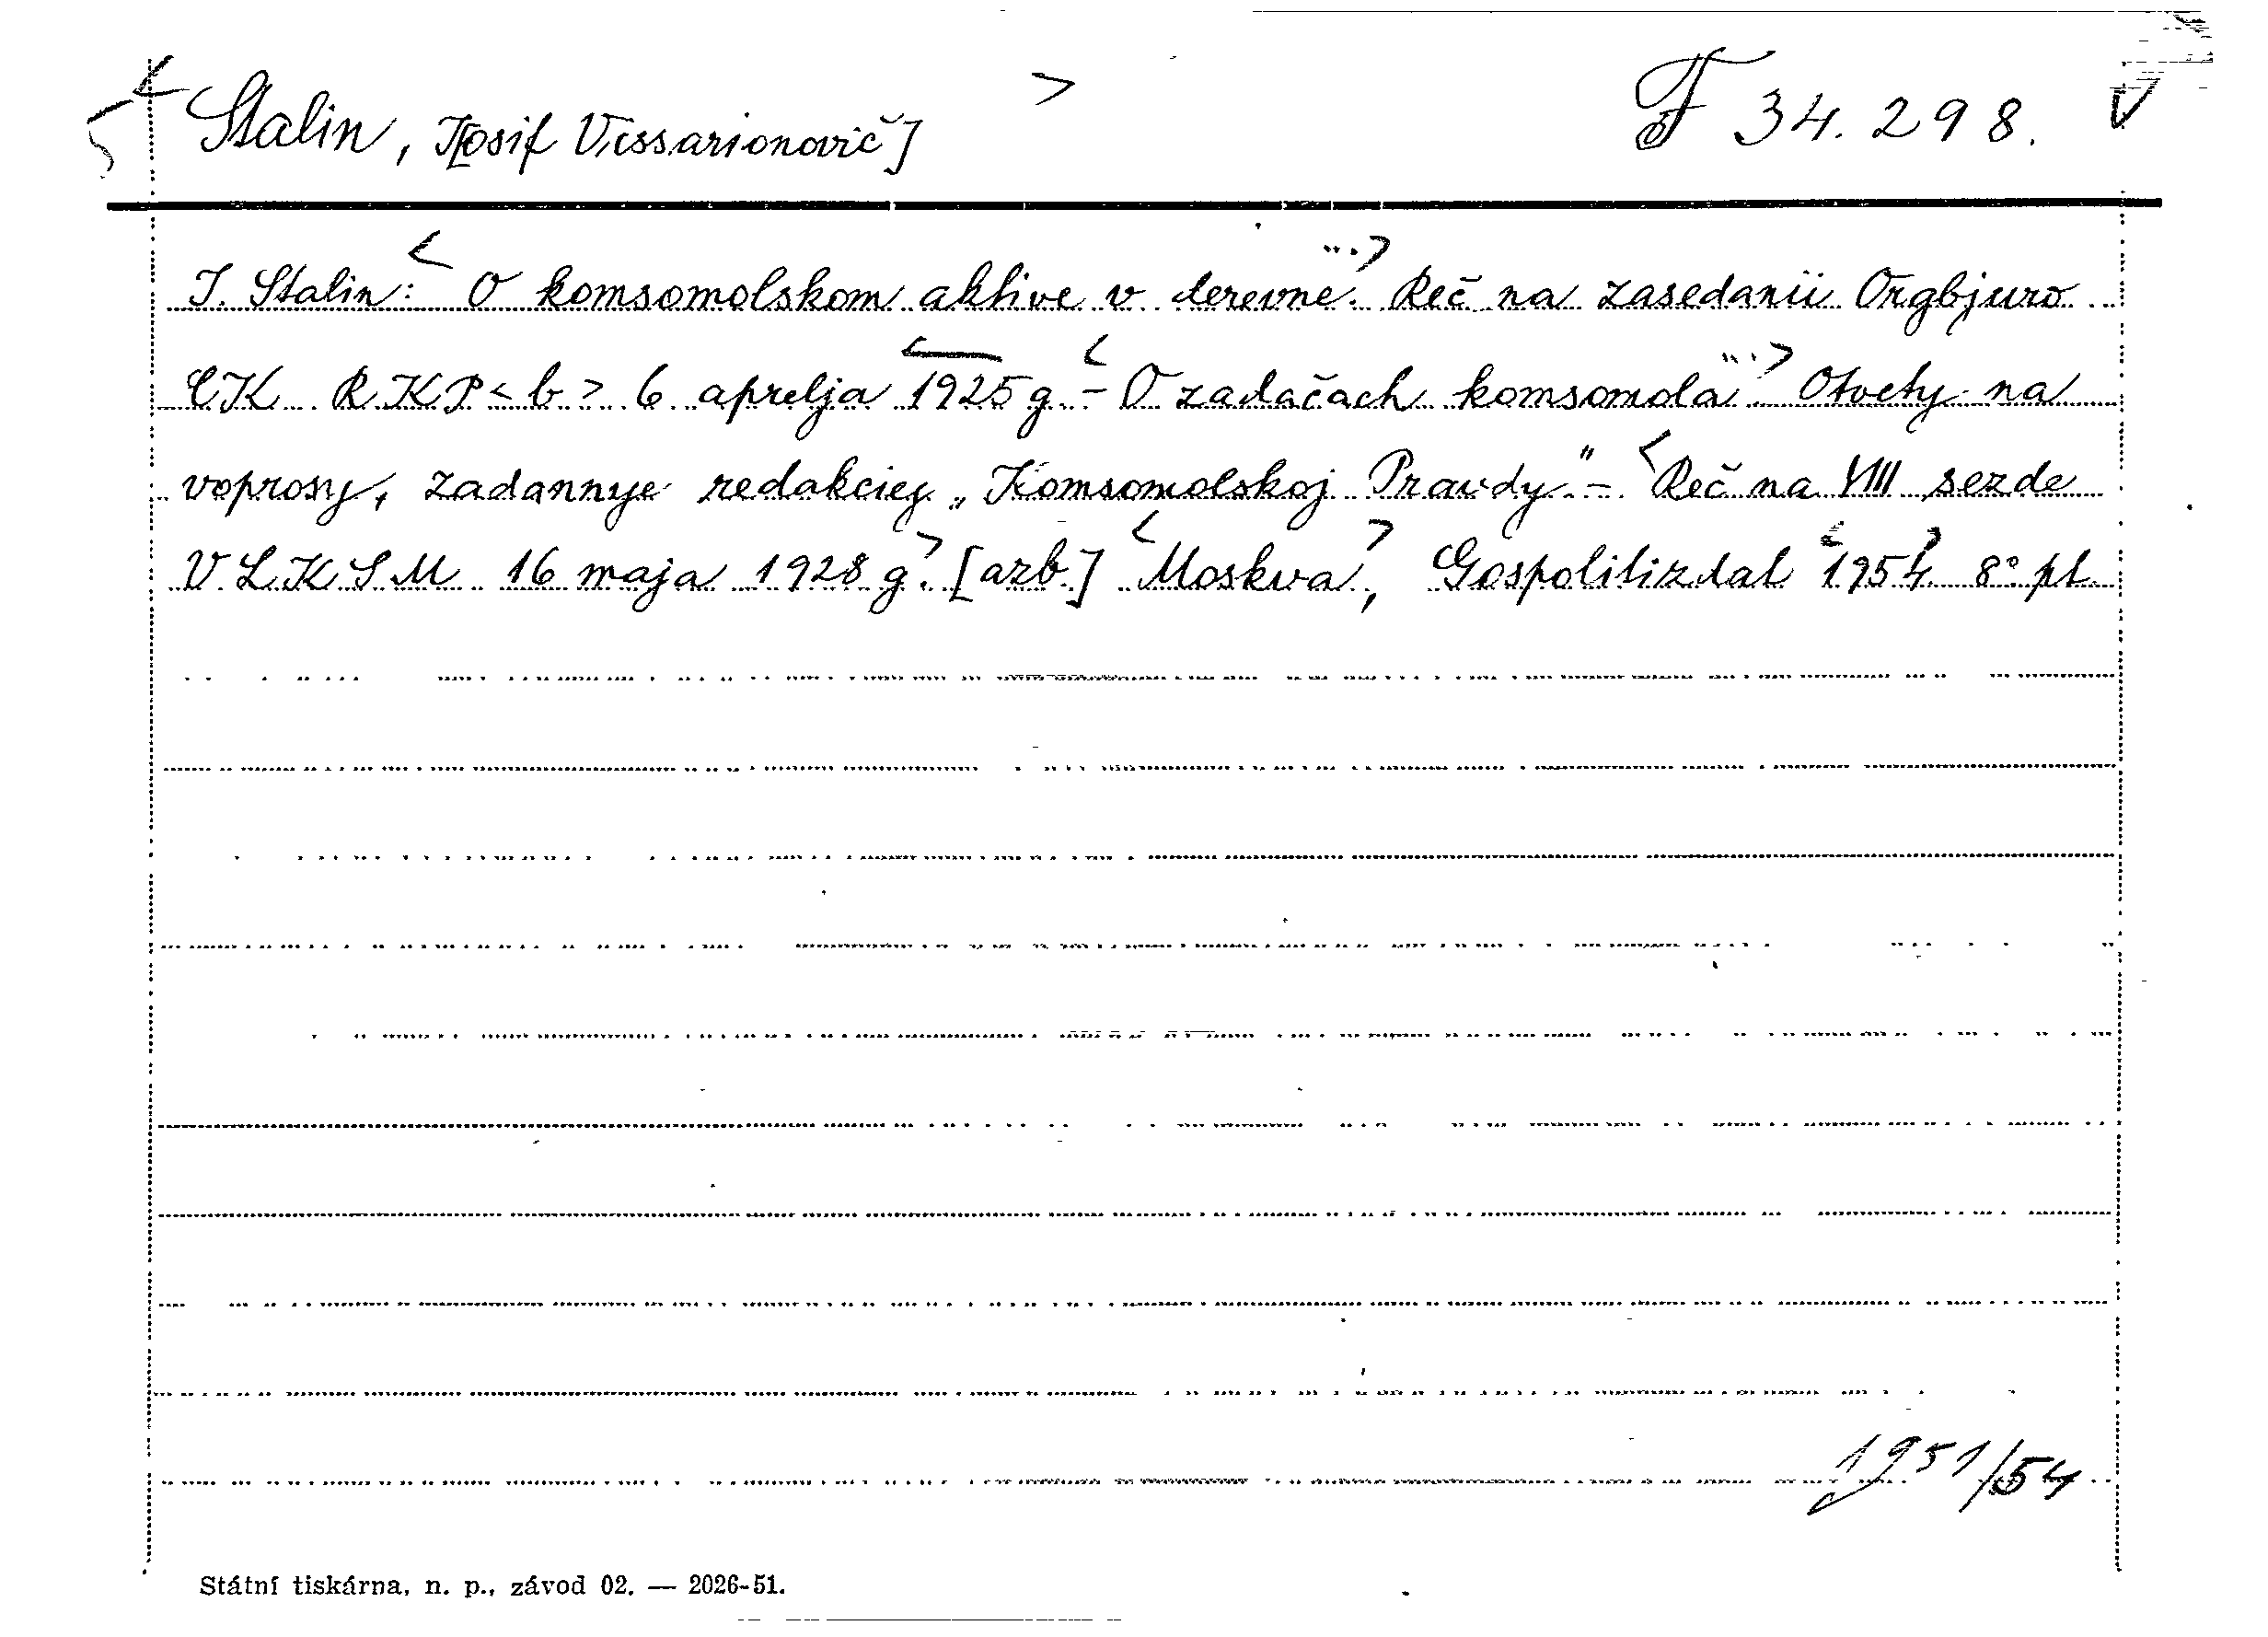 < Stalin, J[osif Vissarionovič] > F 34.298. V
J. Stalin: < O komsomolskom aktive v derevne..."> Reč na zasedanii Orgbjuro
CK RKP < b > 6 aprelja 1925 g. - < O zadačach komsomola..."> Otvety na
voprosy, zadannye redakciej „Komsomolskoj Pravdy" - < Reč na VIII sezde
VLKSM 16 maja 1928 g.> [azb.] < Moskva >, Gospolitizdat < 1954 > 8° pl.
1951/54
Státní tiskárna, n. p., závod 02. — 2026-51.